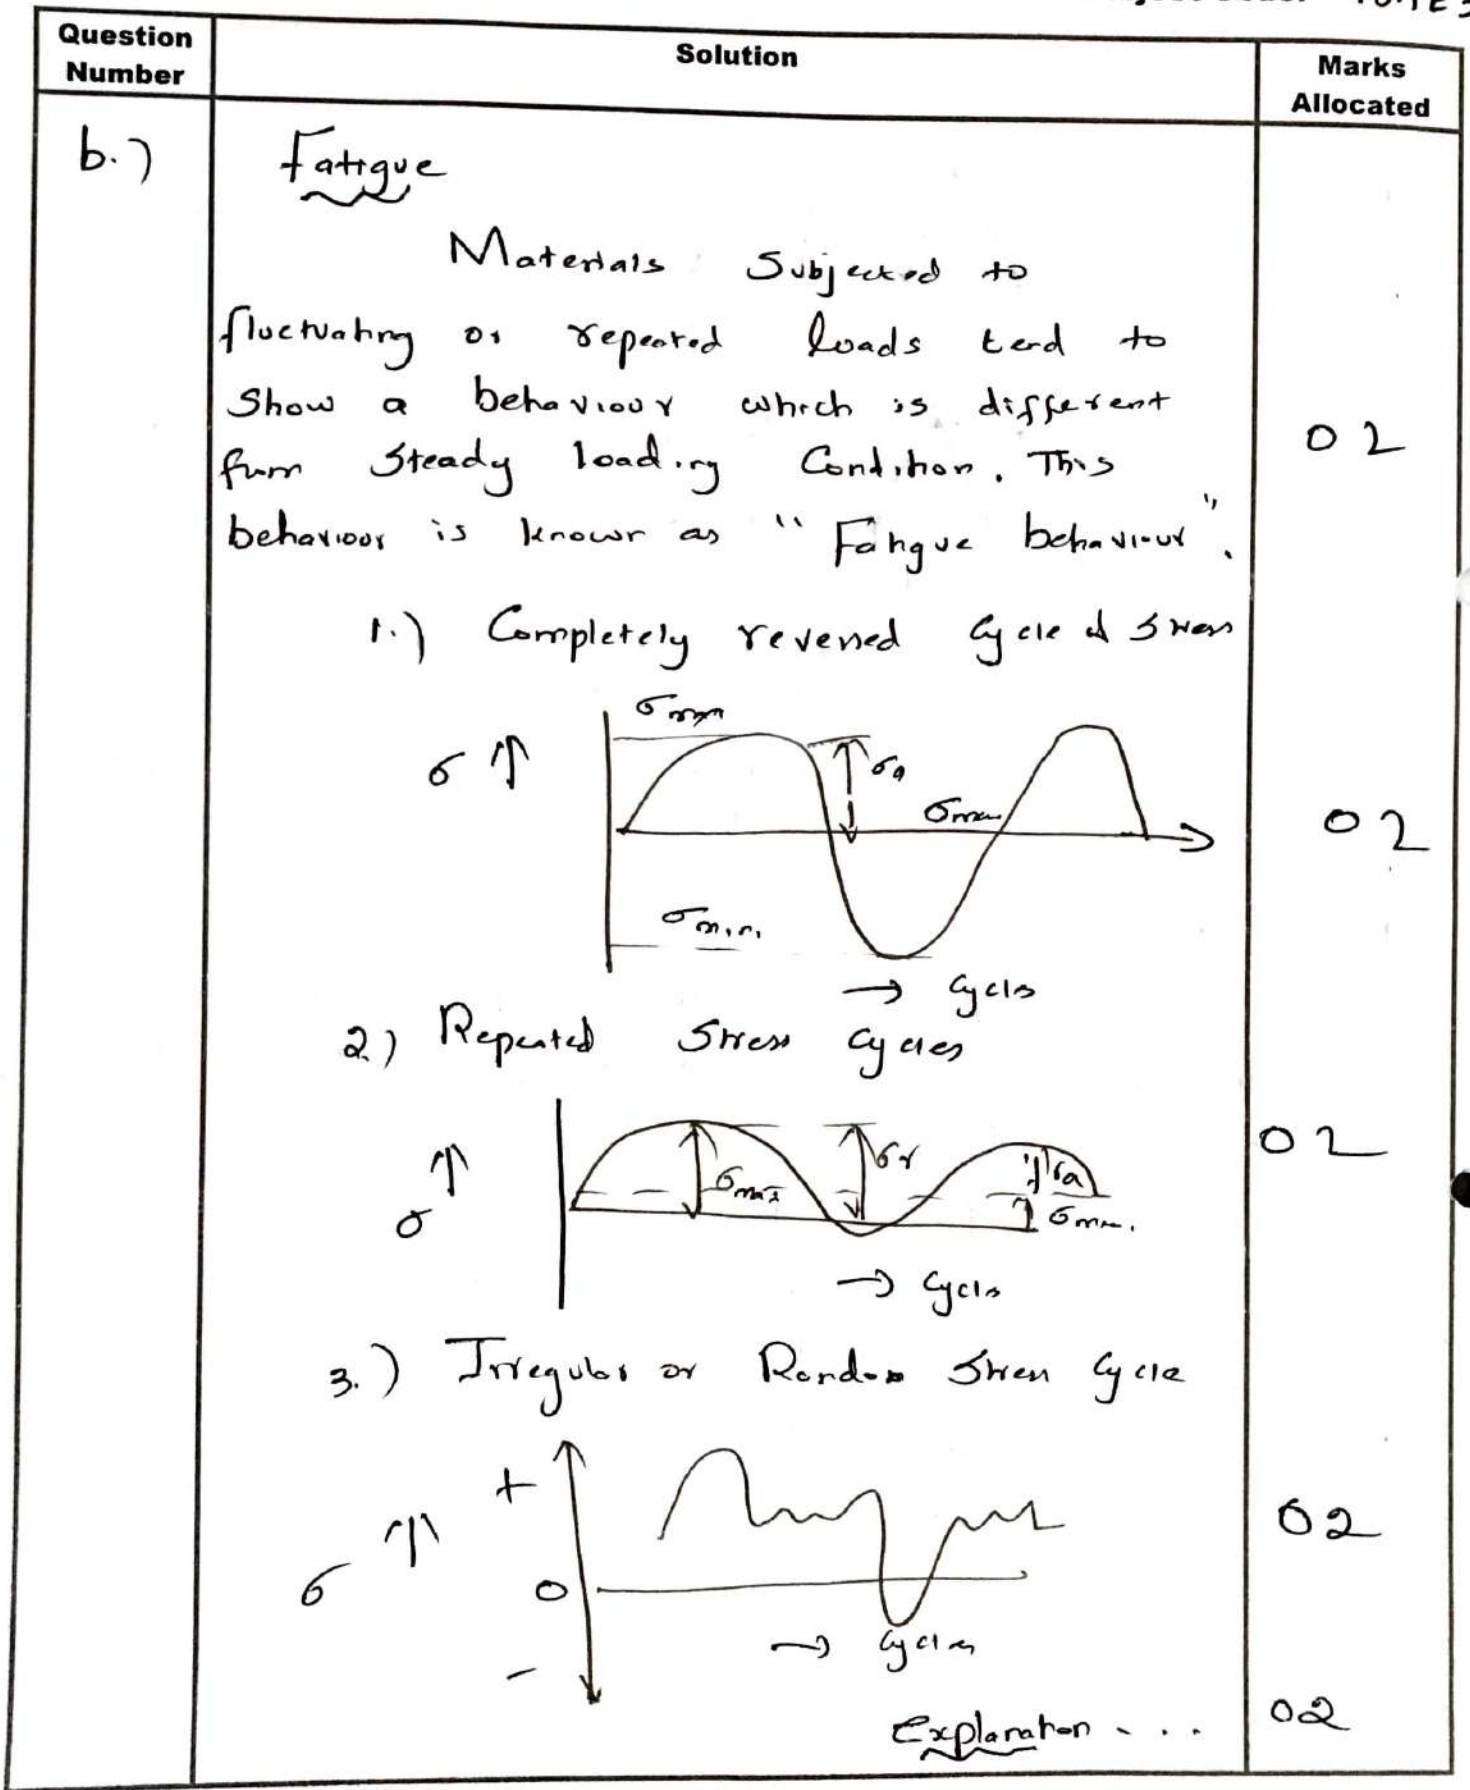 Question Number
Solution
Marks Allocated
b.)
Fatigue
Materials Subjected to
fluctuating or repeated loads tend to
Show a behaviour which is different
from Steady loading Condition. This
behaviour is known as "Fatigue behaviour".
02
1.) Completely reversed Cycle of Stress
σ
σa
σmin
→ Cycles
02
2.) Repeated Stress Cycles
σ
σmax
σr
σa
→ Cycles
02
3.) Irregular or Random Stress Cycle
+
σ
0
-
→ Cycles
02
Explanation ....
02